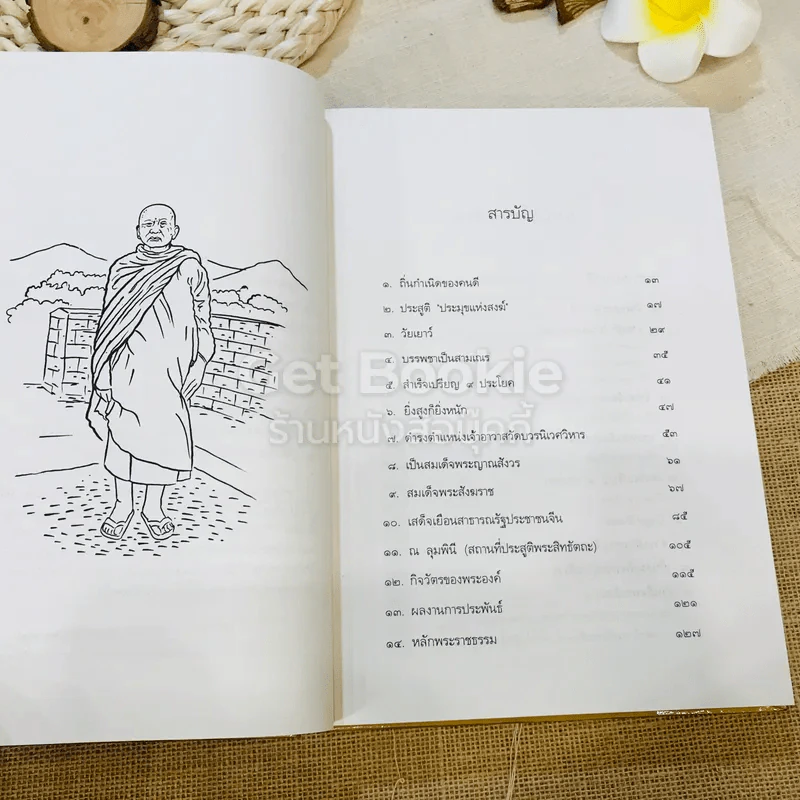 สารบัญ
๑. ถิ่นกำเนิดของคนดี ๑๓
๒. ประสูติ "ประมุขแห่งสงฆ์" ๑๗
๓. วัยเยาว์ ๒๙
๔. บรรพชาเป็นสามเณร ๓๕
๕. สำเร็จเปรียญ ๙ ประโยค ๔๑
๖. ยิ่งสูงก็ยิ่งหนัก ๔๗
๗. ดำรงตำแหน่งเจ้าอาวาสวัดบวรนิเวศวิหาร ๕๓
๘. เป็นสมเด็จพระญาณสังวร ๖๑
๙. สมเด็จพระสังฆราช ๖๗
๑๐. เสด็จเยือนสาธารณรัฐประชาชนจีน ๘๕
๑๑. ณ ลุมพินี (สถานที่ประสูติพระสิทธัตถะ) ๑๐๕
๑๒. กิจวัตรของพระองค์ ๑๑๕
๑๓. ผลงานการประพันธ์ ๑๒๑
๑๔. หลักพระราชธรรม ๑๒๗
Get Bookie
ร้านหนังสือมุ๊คกี้